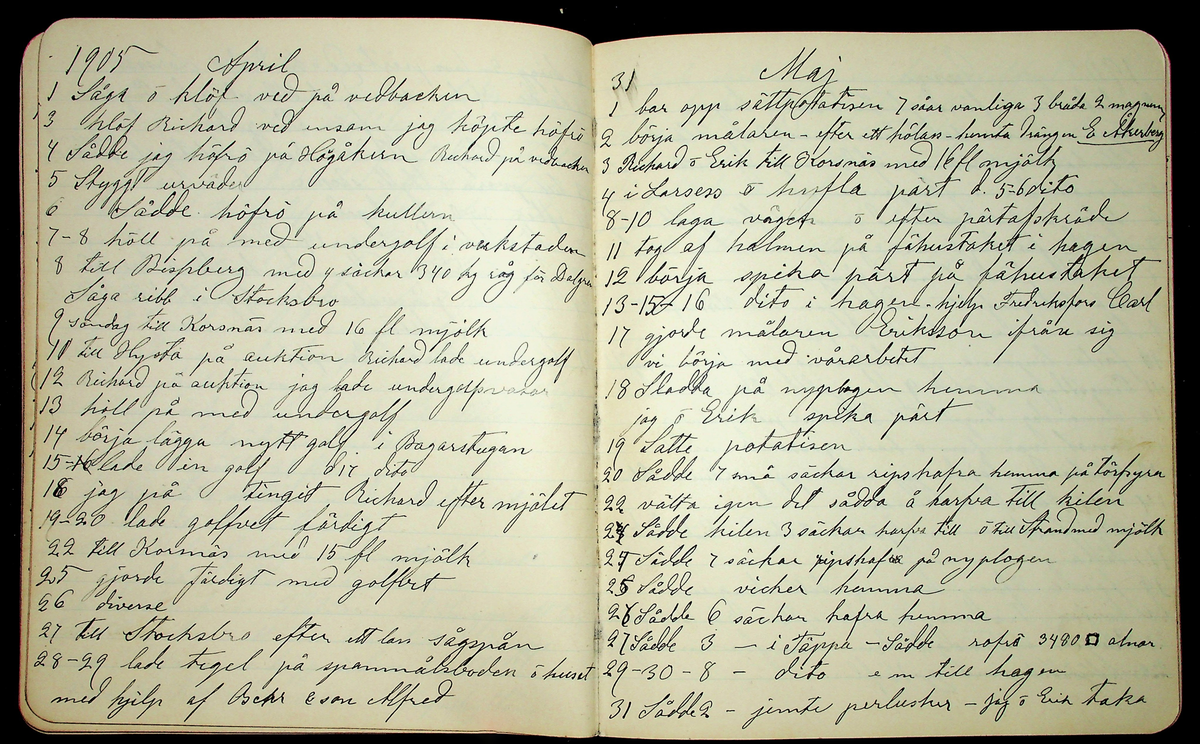 1905 April
1 Såga ö klöf ved på vedbacken
3 klöf Richard ved ensam jag köpte höfrö
4 Sådde jag höfrö på Högåkern Richard på vedbacken
5 Styggt urväder
6 Sådde höfrö på kullern
7-8 höll på med undergolf i verkstaden
8 till Bispberg med 4 säckar 340 kg råg för Dalgren
Såga ribb i Stocksbro
9 söndag till Korsnäs med 16 fl mjölk
10 till Hysta på auktion Richard lade undergolf
12 Richard på auktion jag lade undergolfvasar
13 höll på med undergolf
14 börja lägga nytt golf i Bagarstugan
15-16 lade in golf d 17 dito
18 jag på tinget Richard efter mjölet
19-20 lade golfvet färdigt
22 till Korsnäs med 15 fl mjölk
25 gjorde färdigt med golfvet
26 diverse
27 till Stocksbro efter ett las sågspån
28-29 lade tegel på spanmålsboden ö huset
med hjelp af Alfred
31 Maj
1 bar opp sättpotatisen 7 såar vanliga 3 bråda 2 magnum
2 börja målaren - efter ett hölass - hemta drängen E Åkerberg
3 Richard ö Erik till Korsnäs med 16 fl mjölk
4 i Larsess ö hyfla pärt d. 5-6 dito
8-10 laga vägen ö efter pärtafskräde
11 tog af halmen på fähustaket i hagen
12 börja spika pärt på fähustaket
13-15 16 dito i hagen - hjelp Fredriksfors Carl
17 gjorde målaren Eriksson ifrån sig
vi börja med vårarbetet
18 Sladda på nyplogen hemma
jag ö Erik spika pärt
19 Satte potatisen
20 Sådde 7 små säckar ripshafra hemma på törfsyra
22 välta igen det sådda å harfva till kilen
24 Sådde kilen 3 säckar harfva till ö till Strand med mjölk
24 Sådde 7 säckar ripshafra på nyplogen
25 Sådde vicker hemma
26 Sådde 6 säckar hafra hemma
27 Sådde 3 - i Täppa - Sådde rofrö 3480 □ alnar
29-30-8 - dito e m till hagen
31 Sådde 2 - jemte perlusker - jag ö Erik taka